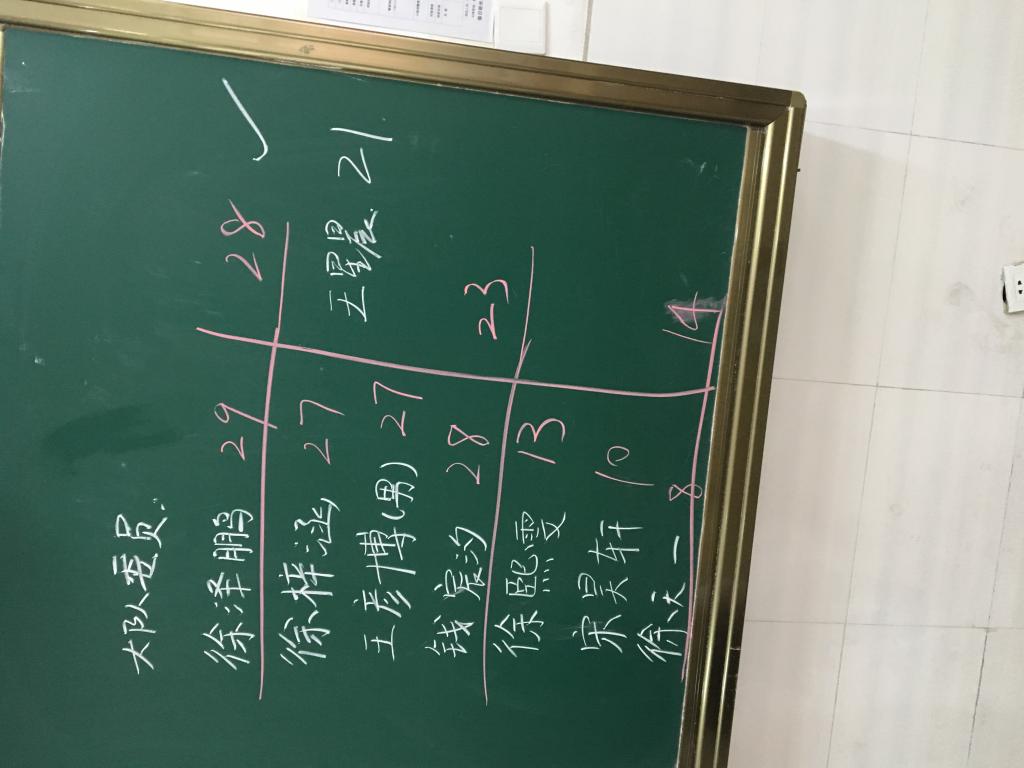 大队委员.
徐泽鹏 29 28 ✓
徐梓涵 27 王星宸 21
王彦博(男) 27
钱宸汐 28 23
徐熙雯 13
宋昊轩 10
徐沐一 8 14